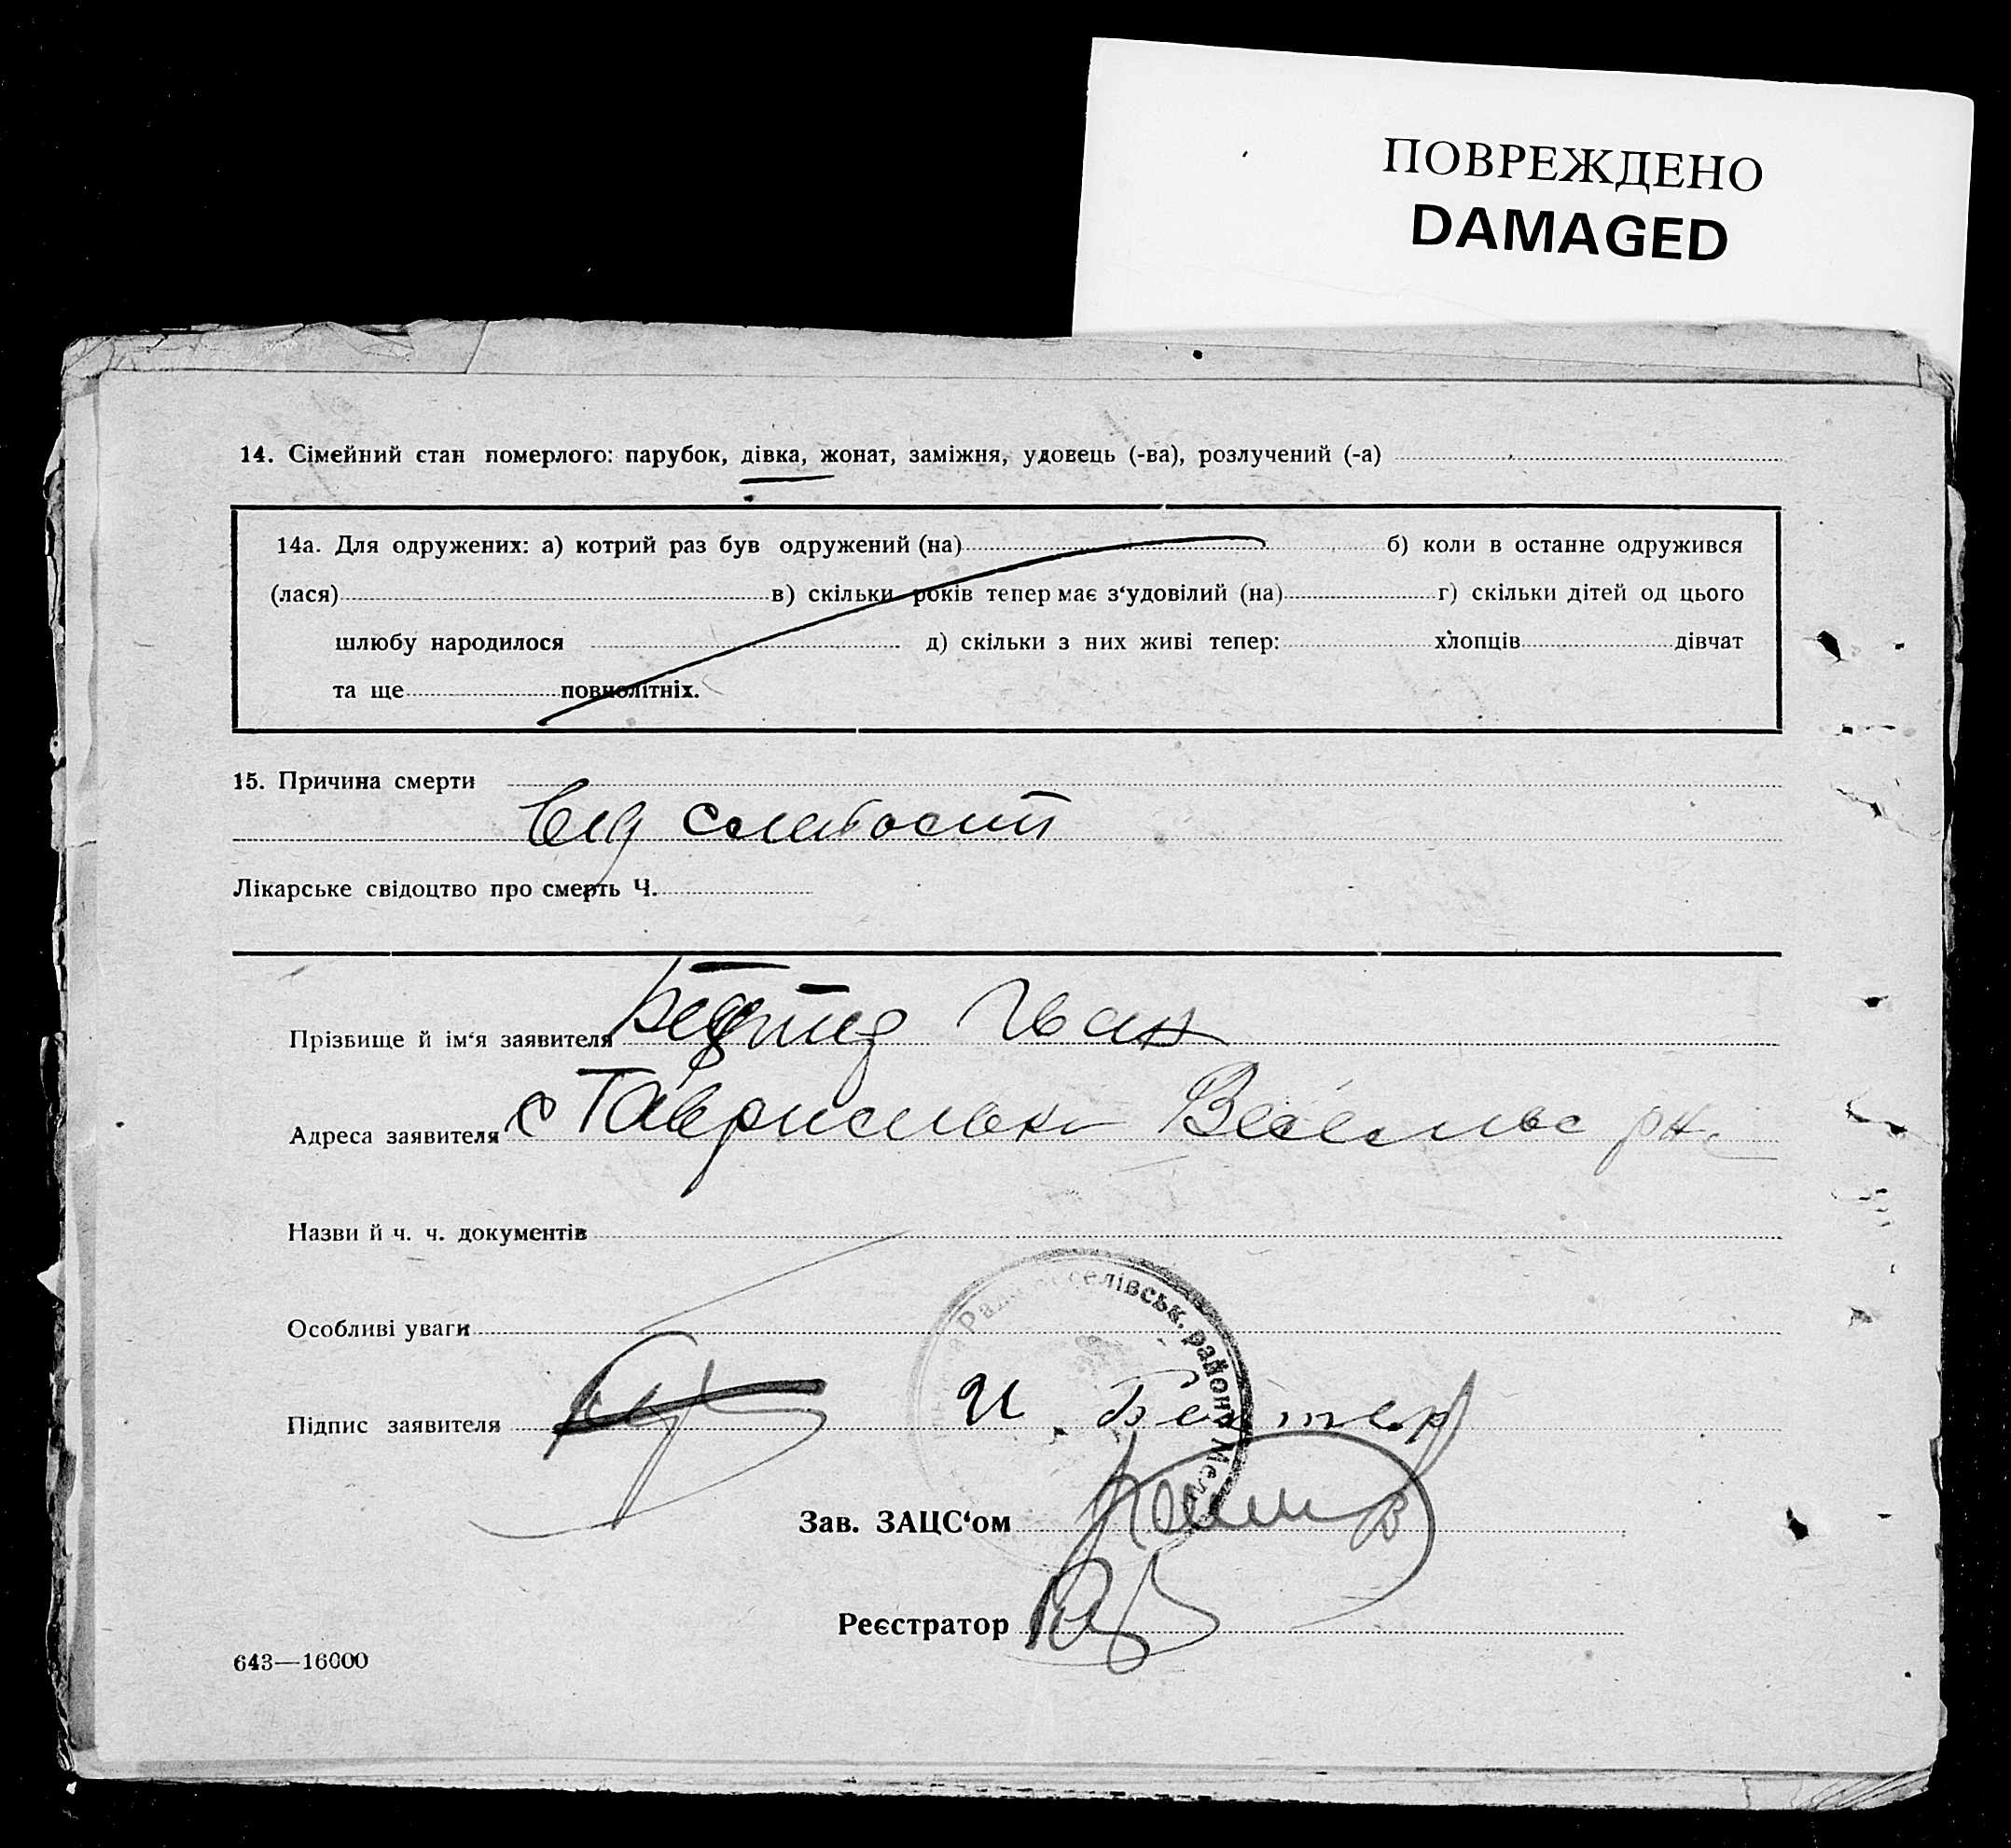 ПОВРЕЖДЕНО
DAMAGED
14. Сімейний стан померлого: парубок, дівка, жонат, заміжня, удовець (-ва), розлучений (-а)
14а. Для одружених: а) котрий раз був одружений (на) б) коли в останне одружився
(лася) в) скільки років тепер має з‘удовілий (на) г) скільки дітей од цього
шлюбу народилося д) скільки з них живі тепер: хлопців дівчат
та ще повнолітніх.
15. Причина смерти
Від слабости
Лікарське свідоцтво про смерть Ч.
Прізвище й ім‘я заявителя Іван
Адреса заявителя с Таврисловка рн.
Назви й ч. ч. документів
Особливі уваги
Підпис заявителя И.
Зав. ЗАЦС‘ом
Реєстратор
Рад селівськ. району Мел
643—16000